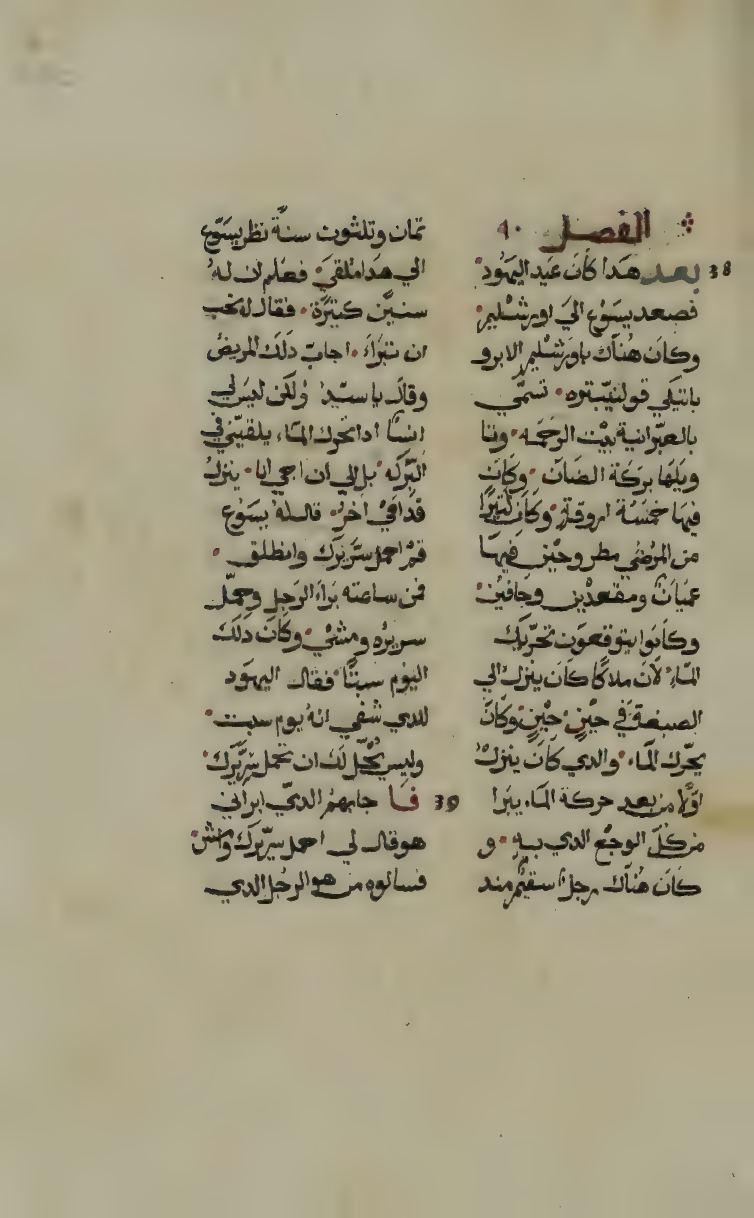 الفصل ٩٠
38 بعد هدا كان عيد اليهود
فصعد يسوع الي اورشليم
وكان هناك باورشليم الابرو
باتيكي قولنيبتره تسمي
بالعبرانية بيت الرحمه وتا
ويلها بركة الضان وكان
فيها خمسة اروقة وكان كتيرا
من المرضي مطروحين فيها
عميان ومقعدين وجافين
وكانوا يتوقعون تحريك
الماء لان ملاكا كان ينزل الي
الصبغة في حين حين وكان
يحرك الماء والدي كان ينزل
اولا من بعد حركة الماء يبرا
من كل الوجع الدي به و
كان هناك رجل سقيم مند
تمان وتلتون سنة نظر يسوع
الي هدا ملقي فعلم ان له
سنين كتيرة فقال له تحب
ان تبراء اجاب دلك المريض
وقال يا سيد ولكن ليس لي
انسا ادا تحرك الماء يلقيني في
البركه بل الي ان اجي انا ينزل
قدامي اخر قال له يسوع
قم احمل سريرك وانطلق
فمن ساعته براء الرجل وحمل
سريره ومشي وكان دلك
اليوم سبتا فقال اليهود
للدي شفي انه يوم سبت
وليس يحل لك ان تحمل سريرك
39 فا جابهم الدي ابراني
هو قال لي احمل سريرك وامش
فسالوه من هو الرجل الدي